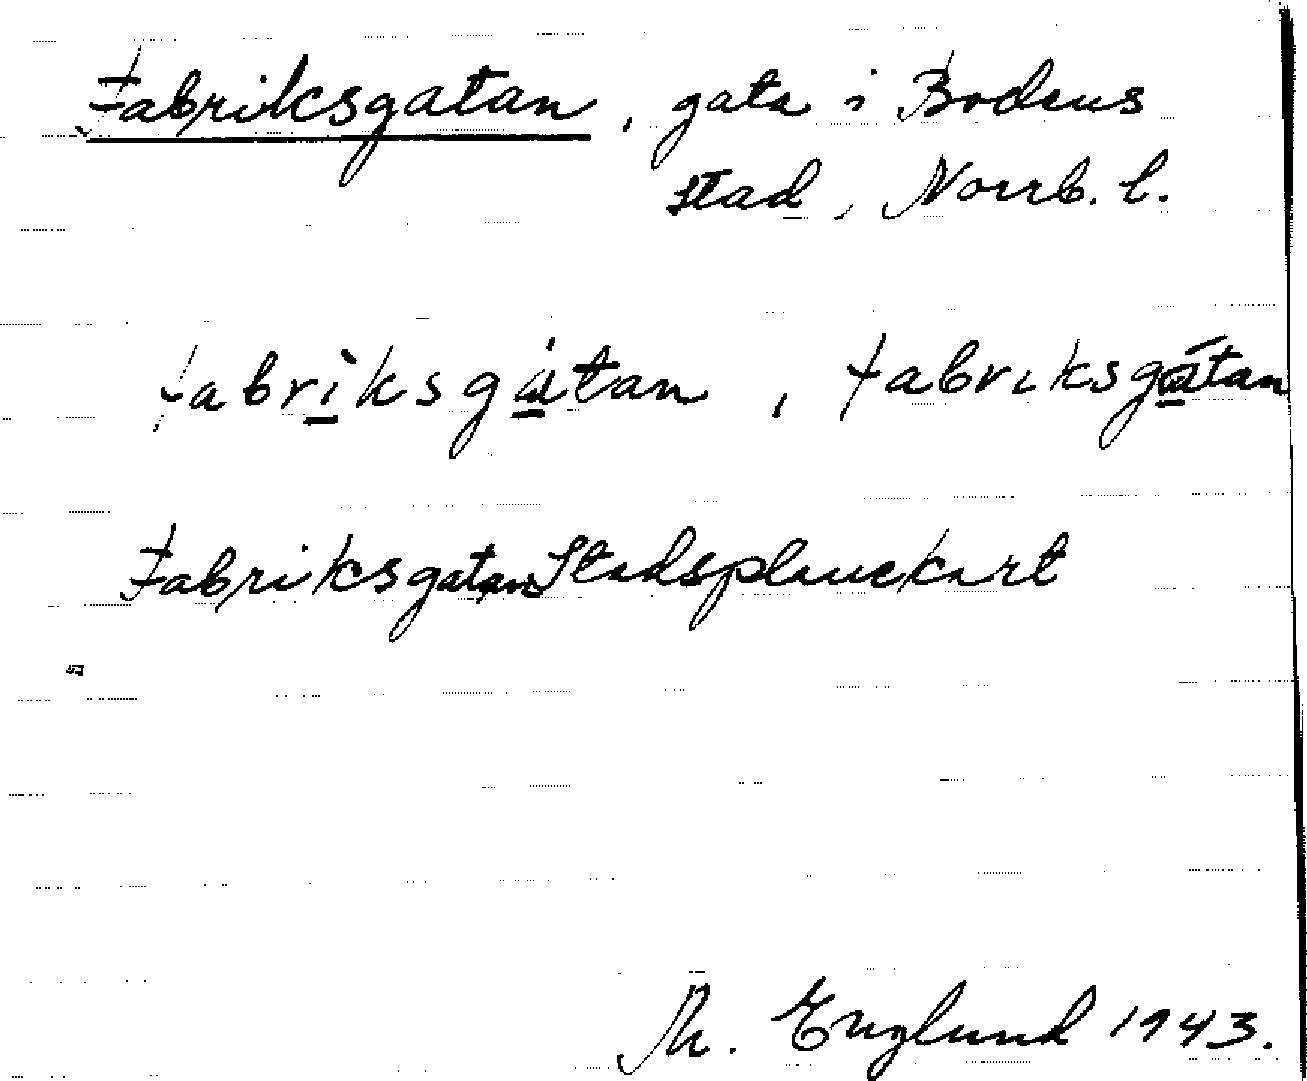 Fabriksgatan, gata i Bodens
stad, Norrb. l.
fabrìksgátan, fabriksgátan
Fabriksgatan Stadsplanekart
Th. Englund 1943.